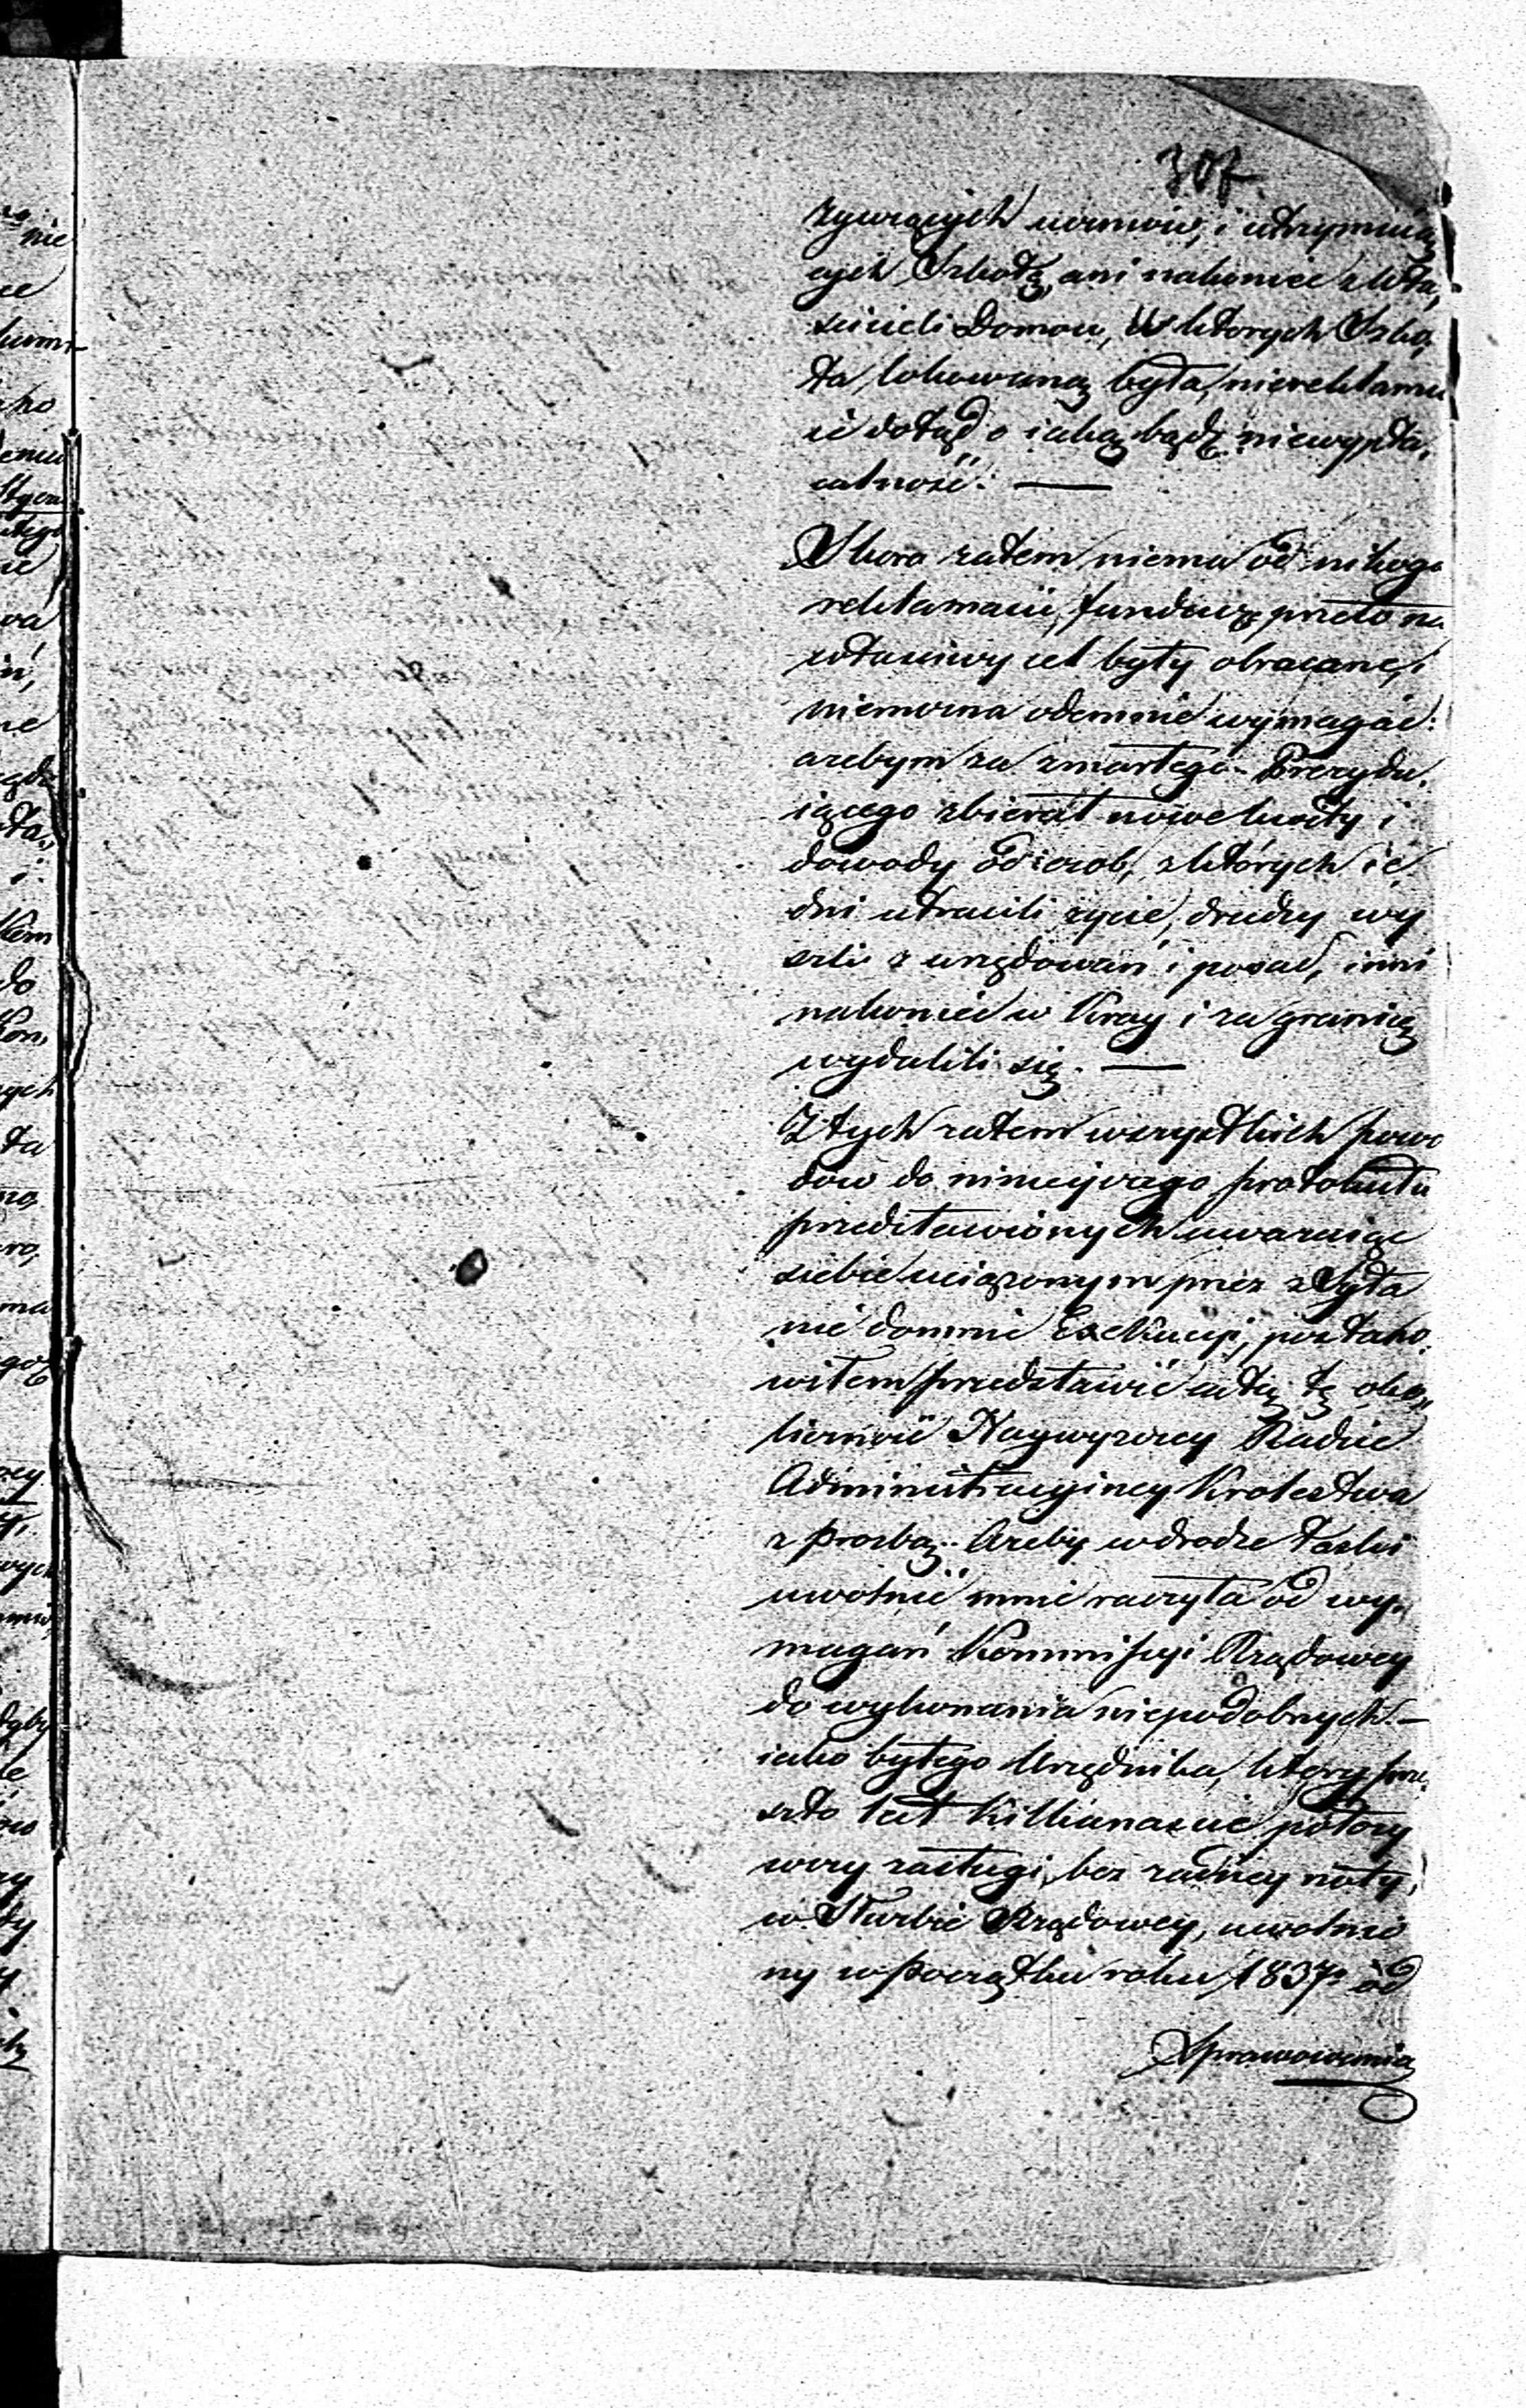 307.
żywiących uczniów, i utrzymuią
cych Szkołę, ani nakoniec z Wła,
scicieli Domow, w ktorych Szko,
ła lokowaną była, niereklamu
ie dotąd o iaką bądź niewypła,
calność. —
Skoro zatem niema od nikogo
reklamacii, fundusze przeto na
właściwy cel były obracane, i
niemożna odemnie wymagać:
ażebym za zmarłego Prezydu,
iącego zbierał nowe kwity i
dowody od osob, z których ie
dni utracili życie, drudzy wy
szli z urzędowań i posad, inni
nakoniec w Kray i za granicę
wydalili się. —
Z tych zatem wszystkich powo
dow do ninieyszego protokułu
przedstawionych uważaiąc
siebie uciążonym przez zesyła
nie do mnie Exekucyi, postano,
wiłem przedstawić całą tę oko,
liczność Naywyższey Radzie
Administracyiney Krolestwa
z prozbą: Ażeby w drodze łaski
uwolnić mnie raczyła od wy,
magań Kommissyi Rządowey
do wykonania niepodobnych. —
iako byłego Urzędnika, ktory prze,
szło lat Kilkanaście położy
wszy zasługi, bez żadney noty,
w Służbie Rządowey, uwolnio
ny w początku roku 1837. od
Sprawowania